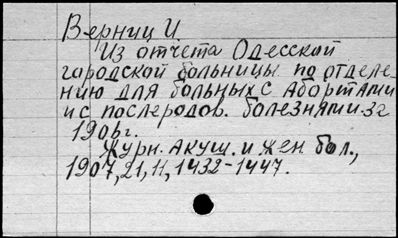 Верниц И.
Из отчета Одесской
городской больницы по отделе-
нию для больных с абортами
и с послеродов. болезнями за
1906г.
Журн. акуш. и жен. бол.,
1907, 21, 11, 1432-1447.